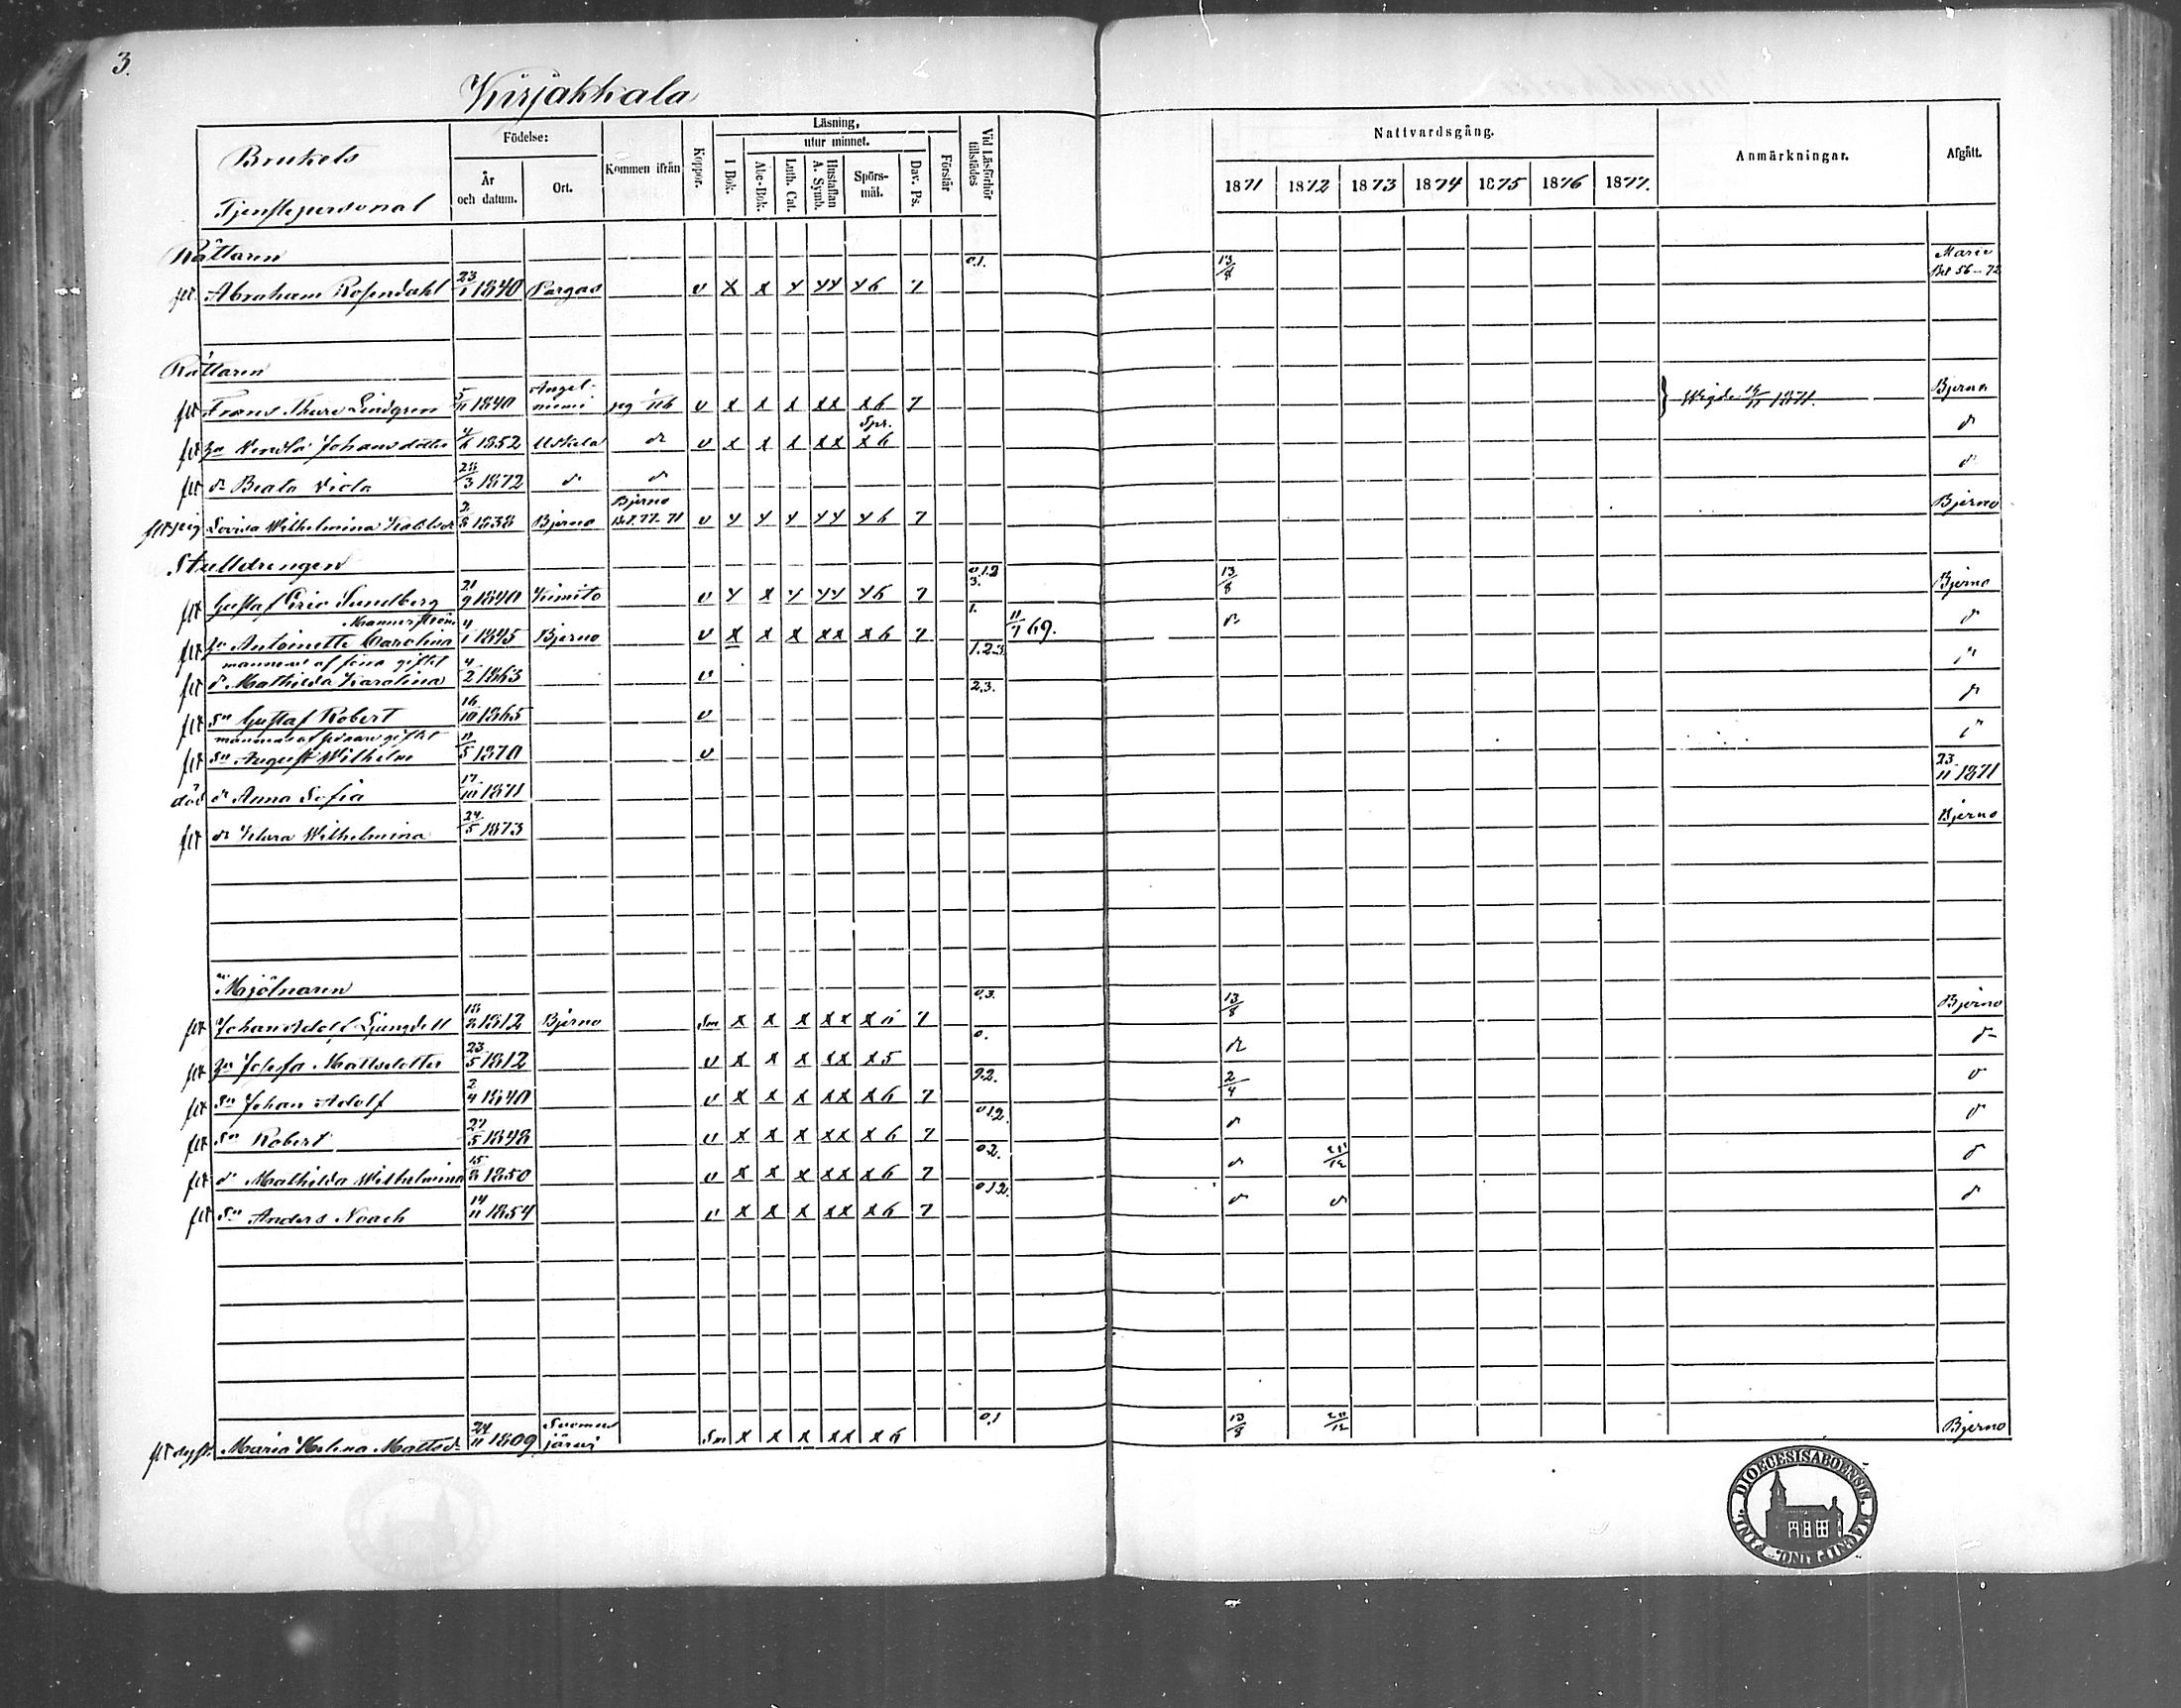 3.
Kirjakkala
Brukets
Tjenstepersonal
Födelse:
År
och datum.
Ort.
Kommen ifrån
Koppor.
Läsning,
utur minnet.
I Bok.
Abc-Bok.
Luth. Cat.
Hustaflan
A. Symb.
Spörs-
mål.
Dav. Ps.
Förstår
Vid Läsförhör
tillstädes
Nattvardsgång.
1871 1872 1873 1874 1875 1876 1877.
Anmärkningar.
Afgått.
Rättaren 0.1. 13/8 Marie
flt. Abraham Rosendahl 23/1 1840 Pargas v x x x xx x6 7
Rättaren
flt Frans Thure Lindgren 5/11 1840 Angelniemi v x x x xx x6 7 Wigde 16/11 1871. Bjerno
flt Johansdotter 4/6 1852 Uskela dr v x x x xx x6 Spr. dr
flt dr Beata Viola 28/3 1872 dr dr dr
flt pig Lovisa Wilhelmina 1838 Bjerno Bjerno v x x x xx x6 7 Bjerno
Stalldrengen
flt Gustaf Eric Sundberg 21/9 1840 Kimito v x x x xx x6 7 0.1.2 3. 13/8 Bjerno
flt Antoinette Carolina 4/1 1845 Bjerno v x x x xx x6 7 1. 11/7 69. dr dr
flt dr Mathilda Karolina 4/2 1863 v 1.2.3
flt sn Gustaf Robert 16/10 1865 v 2.3. dr
flt sn August Wilhelm 11/5 1870 v
död dr Anna Sofia 17/10 1871 23/11 1871
flt dr Wilhelmina 24/5 1873 Bjerno
Mjölnaren
flt Johan Adolf Ljungdell 18/2 1812 Bjerno Sm x x x xx 7 0.3. 13/8 Bjerno
flt Josefa Mattsdotter 23/5 1812 v x x x xx x5 0. dr dr
flt sn Johan Adolf 2/4 1840 v x x x xx x6 7 2/4 dr
flt sn Robert 27/5 1848 v x x x xx x6 7 0.1.2. dr dr
flt dr Mathilda Wilhelmina 1850 v x x x xx x6 7 0.2. dr dr
flt sn Anders Noach 14/11 1854 v x x x xx x6 7 0.1.2. dr dr dr
flt Maria Helena Mattsdr 24/11 1809 Suomusjärwi Sm x x x xx x6 0.1 13/8 Bjerno
DIOECESIS ABOENSIS